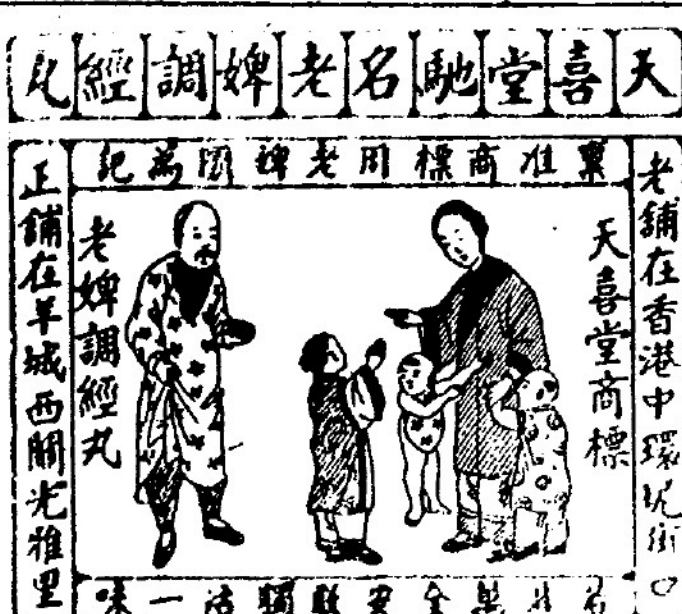 天喜堂馳名老婢調經丸
稟准商標用老婢圖為記
老舖在香港中環街口
天喜堂商標
老婢調經丸
正舖在羊城西關光雅里
一味